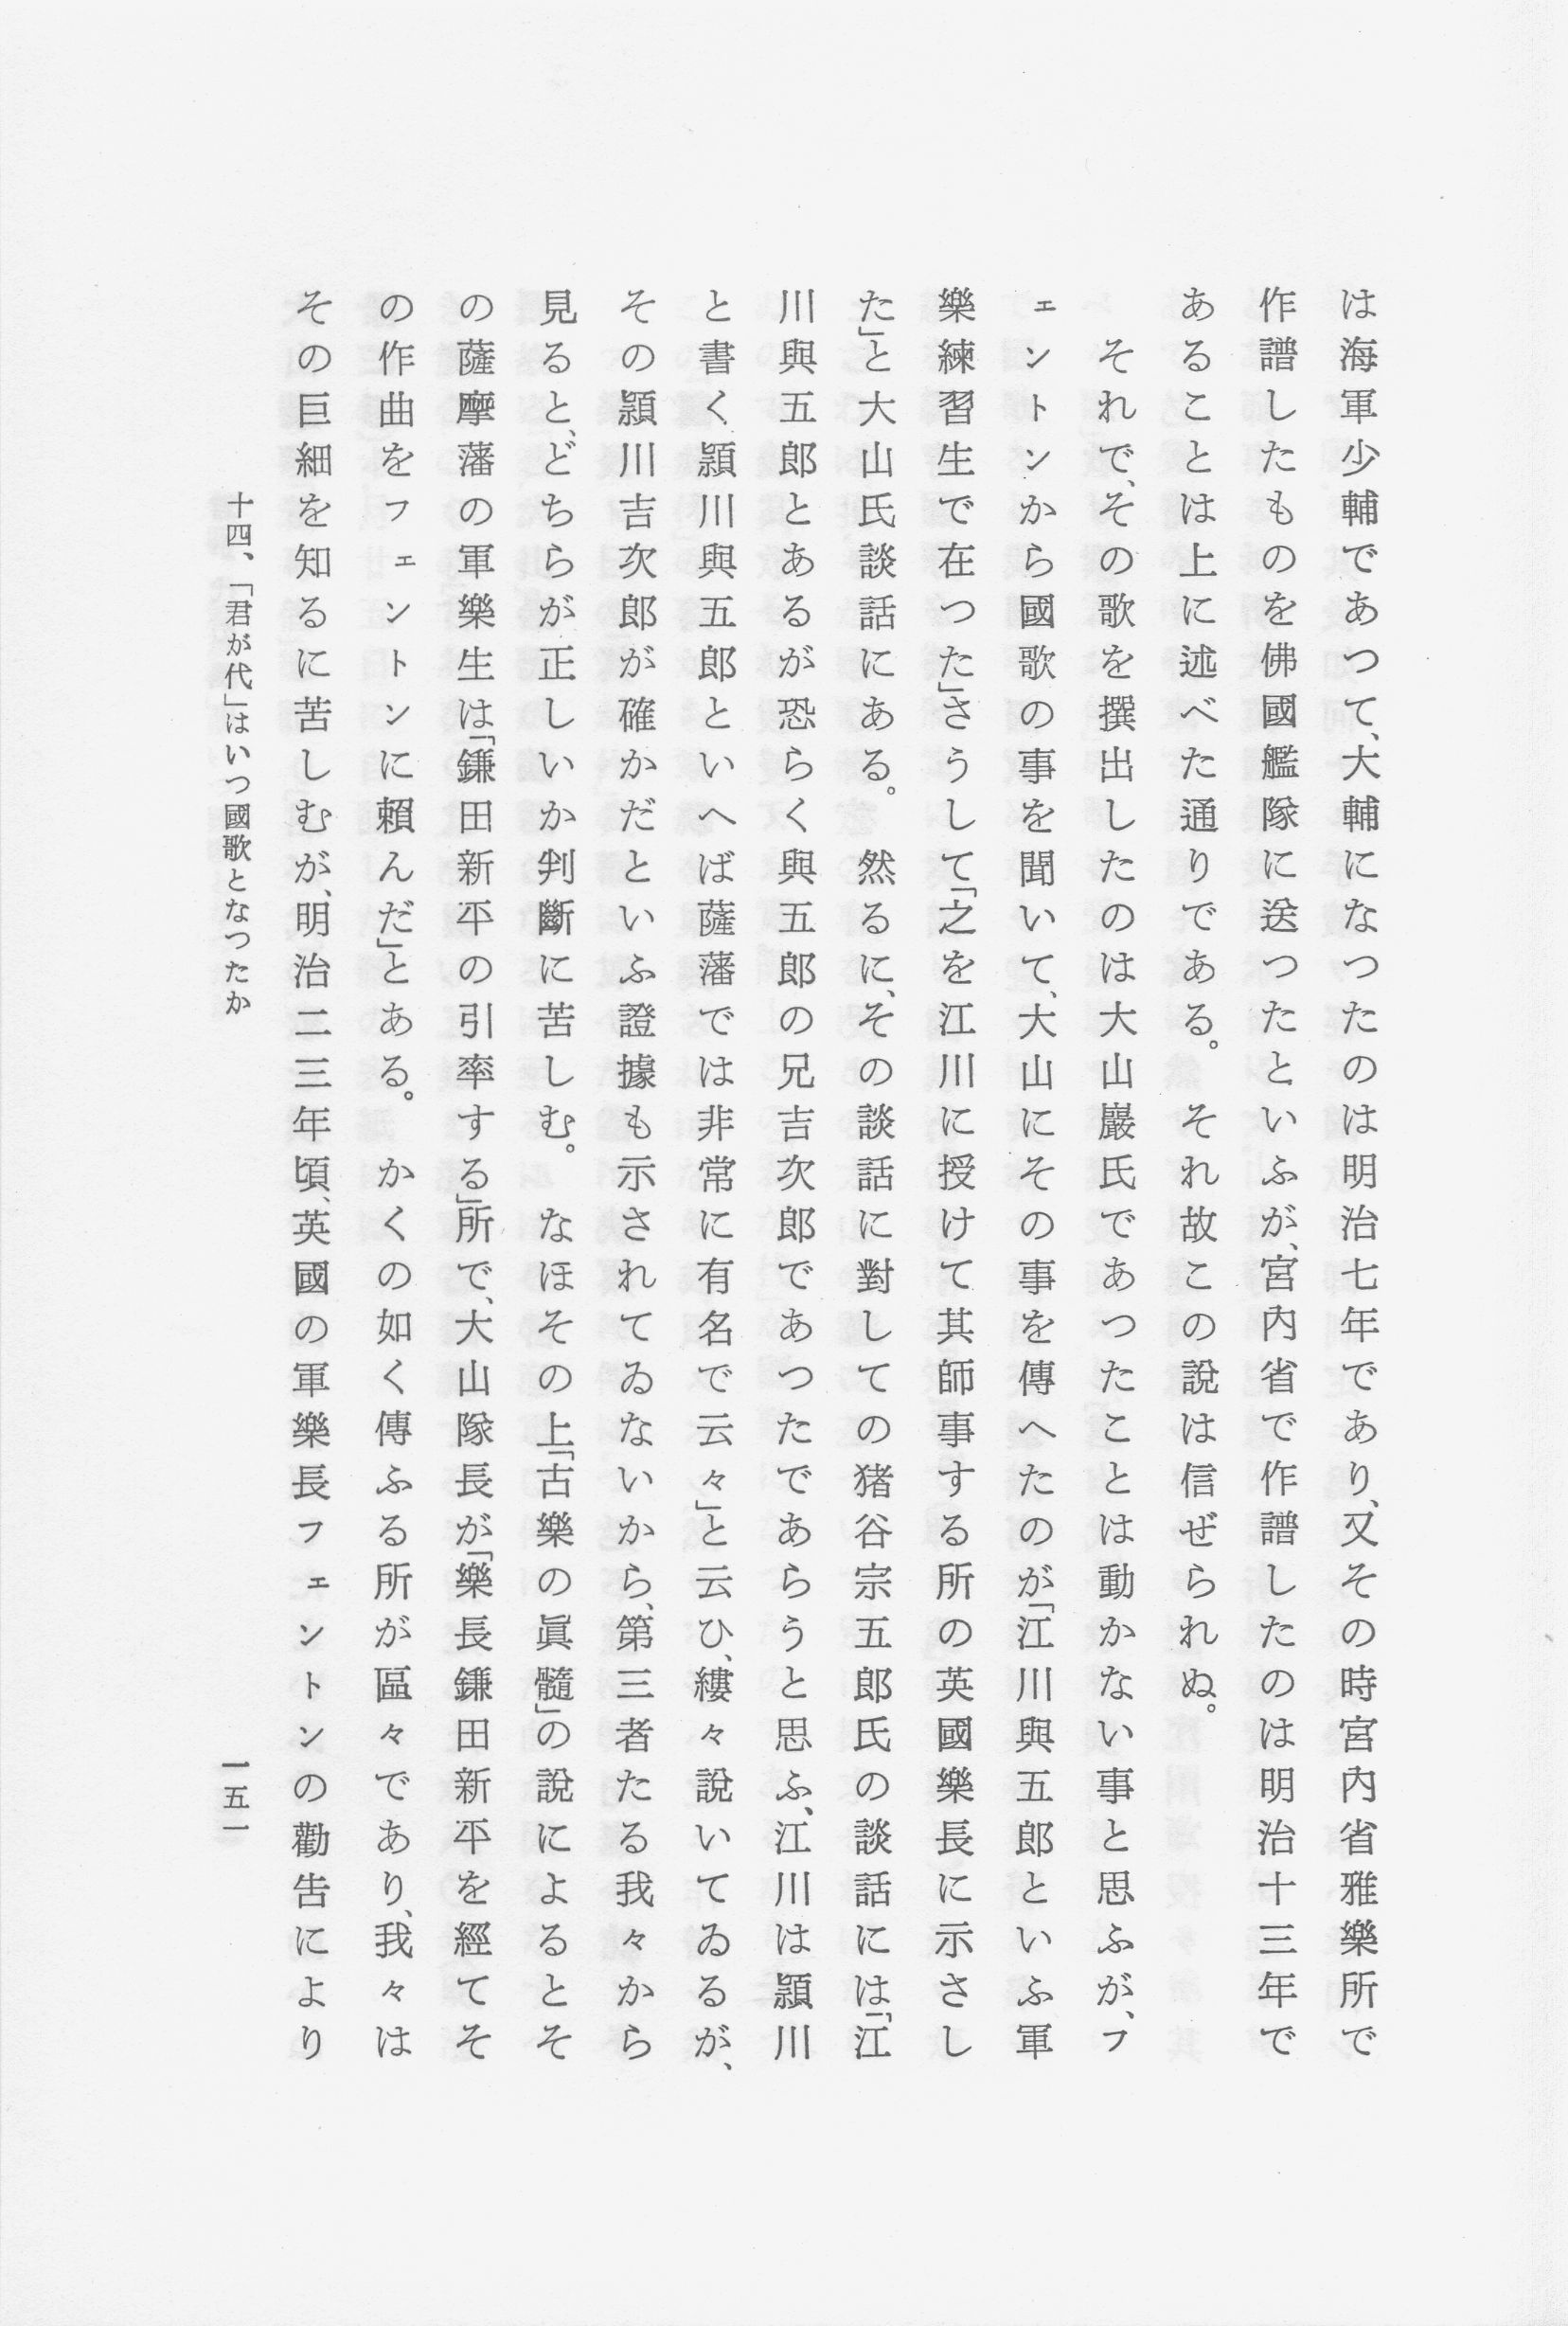 は海軍少輔であつて、大輔になつたのは明治七年であり、又その時宮内省雅樂所で
作譜したものを佛國艦隊に送つたといふが、宮内省で作譜したのは明治十三年で
あることは上に述べた通りである。それ故この說は信ぜられぬ。
それで、その歌を撰出したのは大山巖氏であつたことは動かない事と思ふが、フ
ェントンから國歌の事を聞いて、大山にその事を傳へたのが「江川與五郎といふ軍
樂練習生で在つた」さうして「之を江川に授けて其師事する所の英國樂長に示さし
た」と大山氏談話にある。然るに、その談話に對しての猪谷宗五郎氏の談話には「江
川與五郎とあるが恐らく與五郎の兄吉次郎であつたであらうと思ふ、江川は頴川
と書く頴川與五郎といへば薩藩では非常に有名で云々」と云ひ、縷々說いてゐるが、
その頴川吉次郎が確かだといふ證據も示されてゐないから、第三者たる我々から
見ると、どちらが正しいか判斷に苦しむ。なほその上「古樂の眞髓」の說によるとそ
の薩摩藩の軍樂生は「鎌田新平の引率する」所で、大山隊長が「樂長鎌田新平を經てそ
の作曲をフェントンに賴んだ」とある。かくの如く傳ふる所が區々であり、我々は
その巨細を知るに苦しむが、明治二三年頃、英國の軍樂長フェントンの勸告により
十四、「君が代」はいつ國歌となつたか
一五一